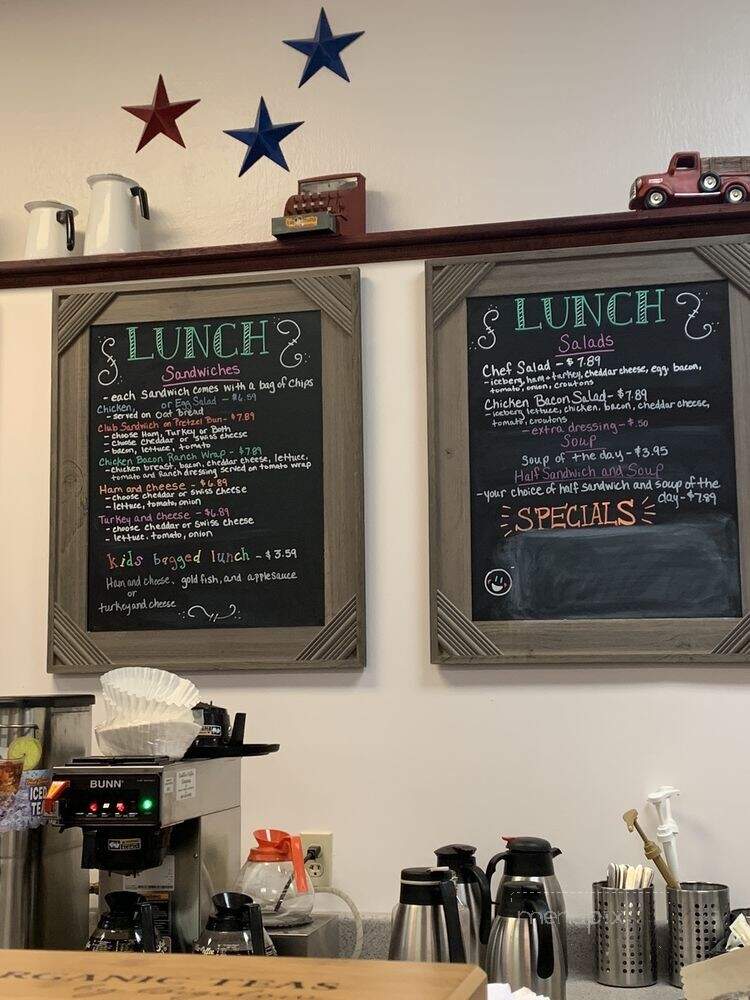 LUNCH
Sandwiches
- each sandwich comes with a bag of chips
Chicken, or Egg Salad - $6.59
- served on Oat bread
Club Sandwich on Pretzel Bun - $7.89
- choose Ham, Turkey or Both
- choose cheddar or Swiss cheese
- bacon, lettuce, tomato
Chicken Bacon Ranch Wrap - $7.89
- chicken breast, bacon, cheddar cheese, lettuce,
tomato and ranch dressing served on tomato wrap
Ham and cheese - $6.89
- choose cheddar or swiss cheese
- lettuce, tomato, onion
Turkey and Cheese - $6.89
- choose cheddar or Swiss cheese
- lettuce, tomato, onion
kids bagged lunch - $3.59
Ham and cheese, goldfish, and applesauce
or
turkey and cheese
LUNCH
Salads
Chef Salad - $7.89
- iceberg, ham + turkey, cheddar cheese, egg, bacon,
tomato, onion, croutons
Chicken Bacon Salad - $7.89
- iceberg lettuce, chicken, bacon, cheddar cheese,
tomato, croutons
- extra dressing - $.50
Soup
Soup of the day - $3.95
Half Sandwich and Soup
- your choice of half sandwich and soup of the
day - $7.89
SPECIALS
BUNN
ICED
TEA
ORGANIC TEAS
menupix